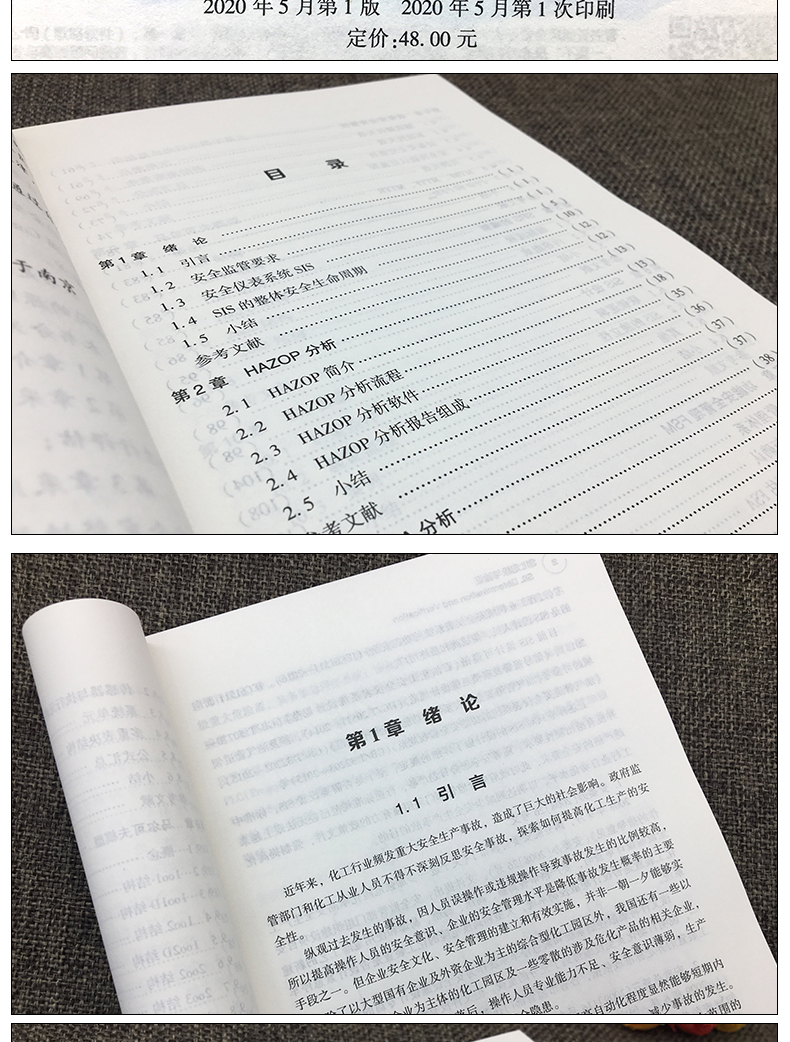 2020 年 5 月第 1 版　2020 年 5 月第 1 次印刷
定价:48.00 元
目　录
第 1 章　绪　论 ( 1 )
1.1　引言 ( 1 )
1.2　安全监管要求 ( 1 )
1.3　安全仪表系统 SIS ( 5 )
1.4　SIS 的整体安全生命周期 (10)
1.5　小结 (12)
参考文献 (12)
第 2 章　HAZOP 分析 (13)
2.1　HAZOP 简介 (13)
2.2　HAZOP 分析流程 (18)
2.3　HAZOP 分析软件 (35)
2.4　HAZOP 分析报告组成 (36)
2.5　小结 (37)
参考文献 (37)
分析 (38
于南京
第 1 章　绪　论
1.1　引　言
近年来，化工行业频发重大安全生产事故，造成了巨大的社会影响。政府监
管部门和化工从业人员不得不深刻反思安全事故，探索如何提高化工生产的安
全性。
纵观过去发生的事故，因人员误操作或违规操作导致事故发生的比例较高，
所以提高操作人员的安全意识、企业的安全管理水平是降低事故发生概率的主要
手段之一。但企业安全文化、安全管理的建立和有效实施，并非一朝一夕能够实
除了以大型国有企业及外资企业为主的综合型化工园区外，我国还有一些以
企业为主体的化工园区及一些零散的涉及危化产品的相关企业，
落后，操作人员专业能力不足、安全意识薄弱，生产
全隐患。
高自动化程度显然能够短期内
减少事故的发生。
范围的